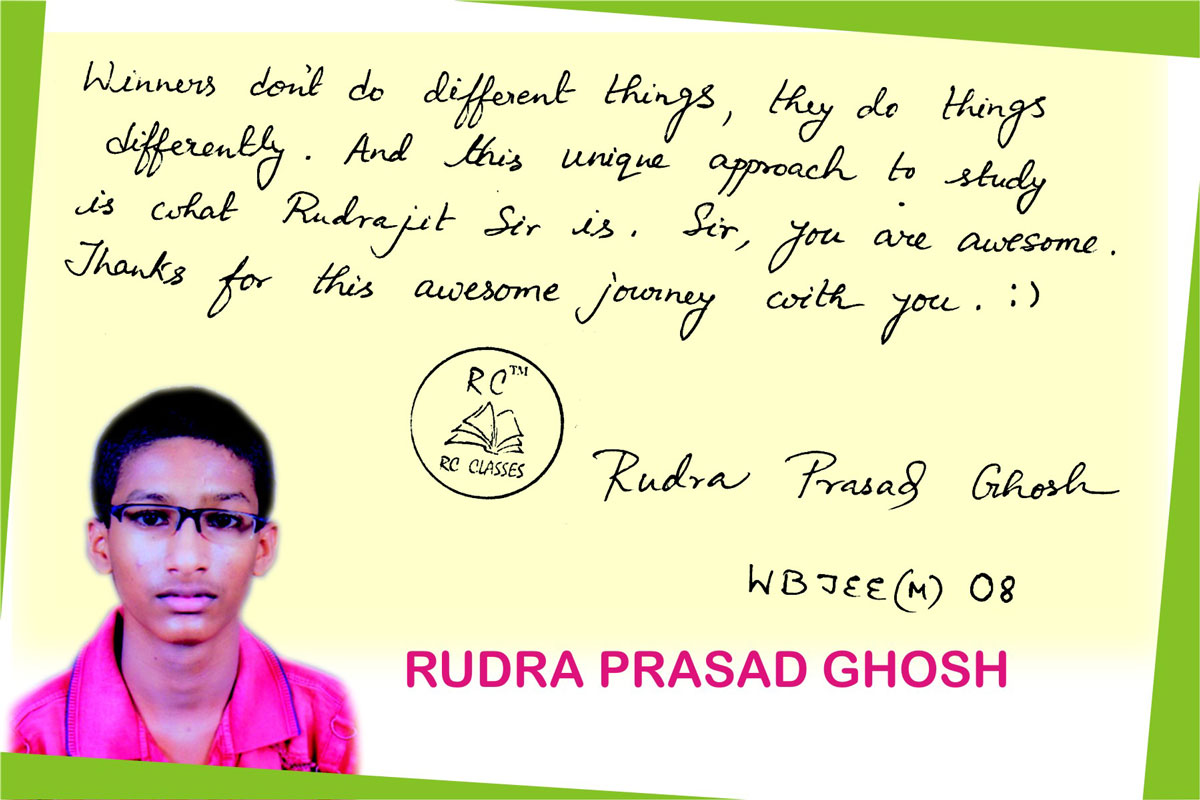 Winners don't do different things, they do things
differently. And this unique approach to study
is what Rudrajit Sir is. Sir, you are awesome.
Thanks for this awesome journey with you. :)
RC™
RC CLASSES
Rudra Prasad Ghosh
WBJEE(M) 08
RUDRA PRASAD GHOSH